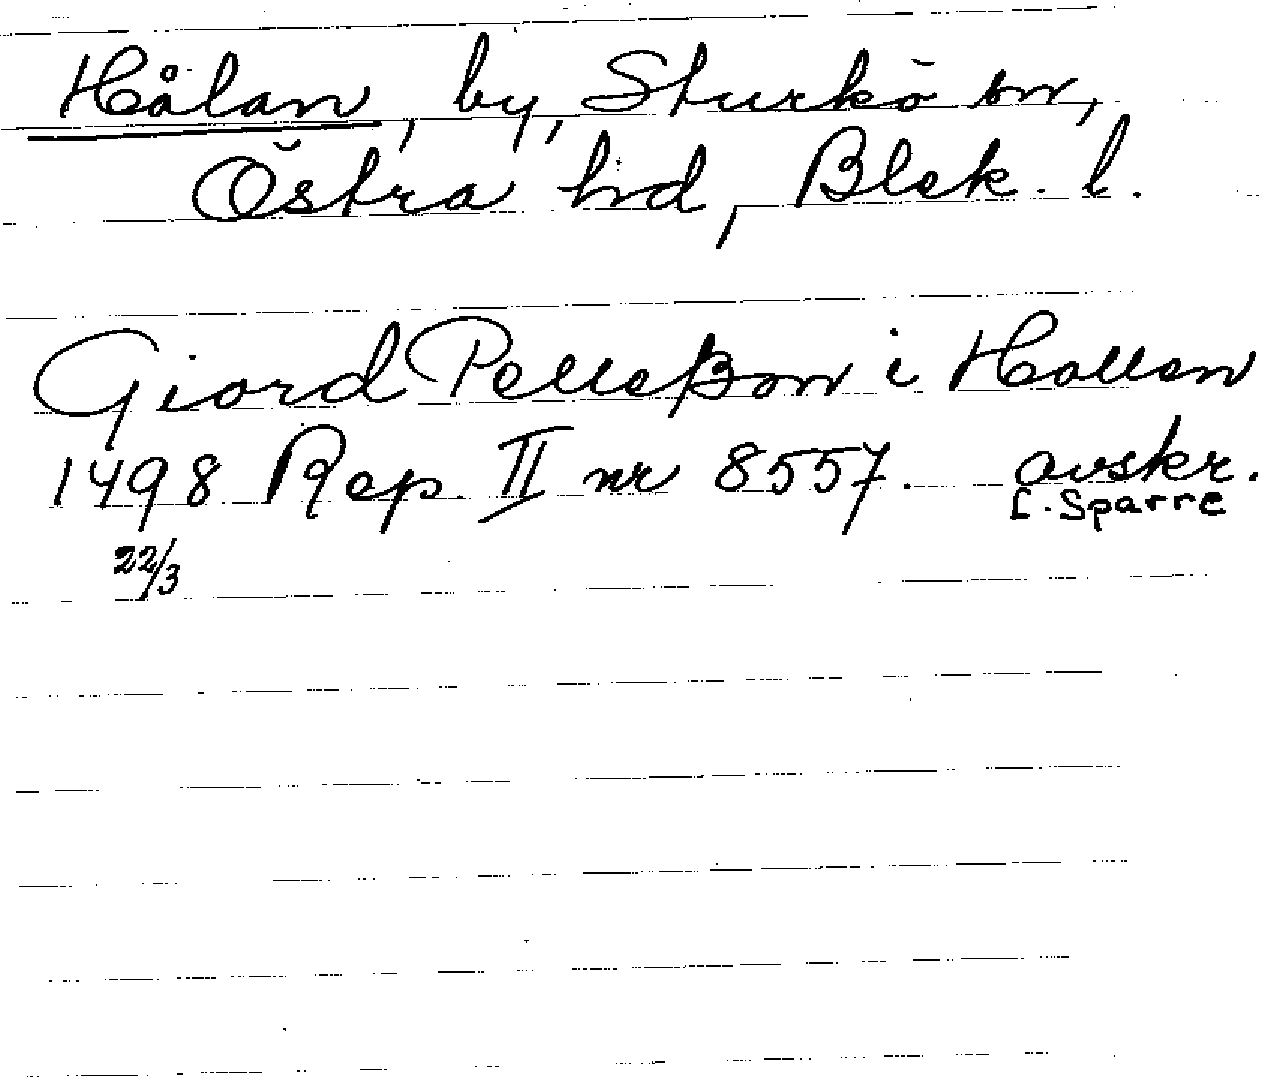 Hålan, by, Sturkö sn,
Östra hd, Blek. l.
Giord Pelleßon i Hollen
1498 Rep. II nr 8557. avskr.
L. Sparre
22/3